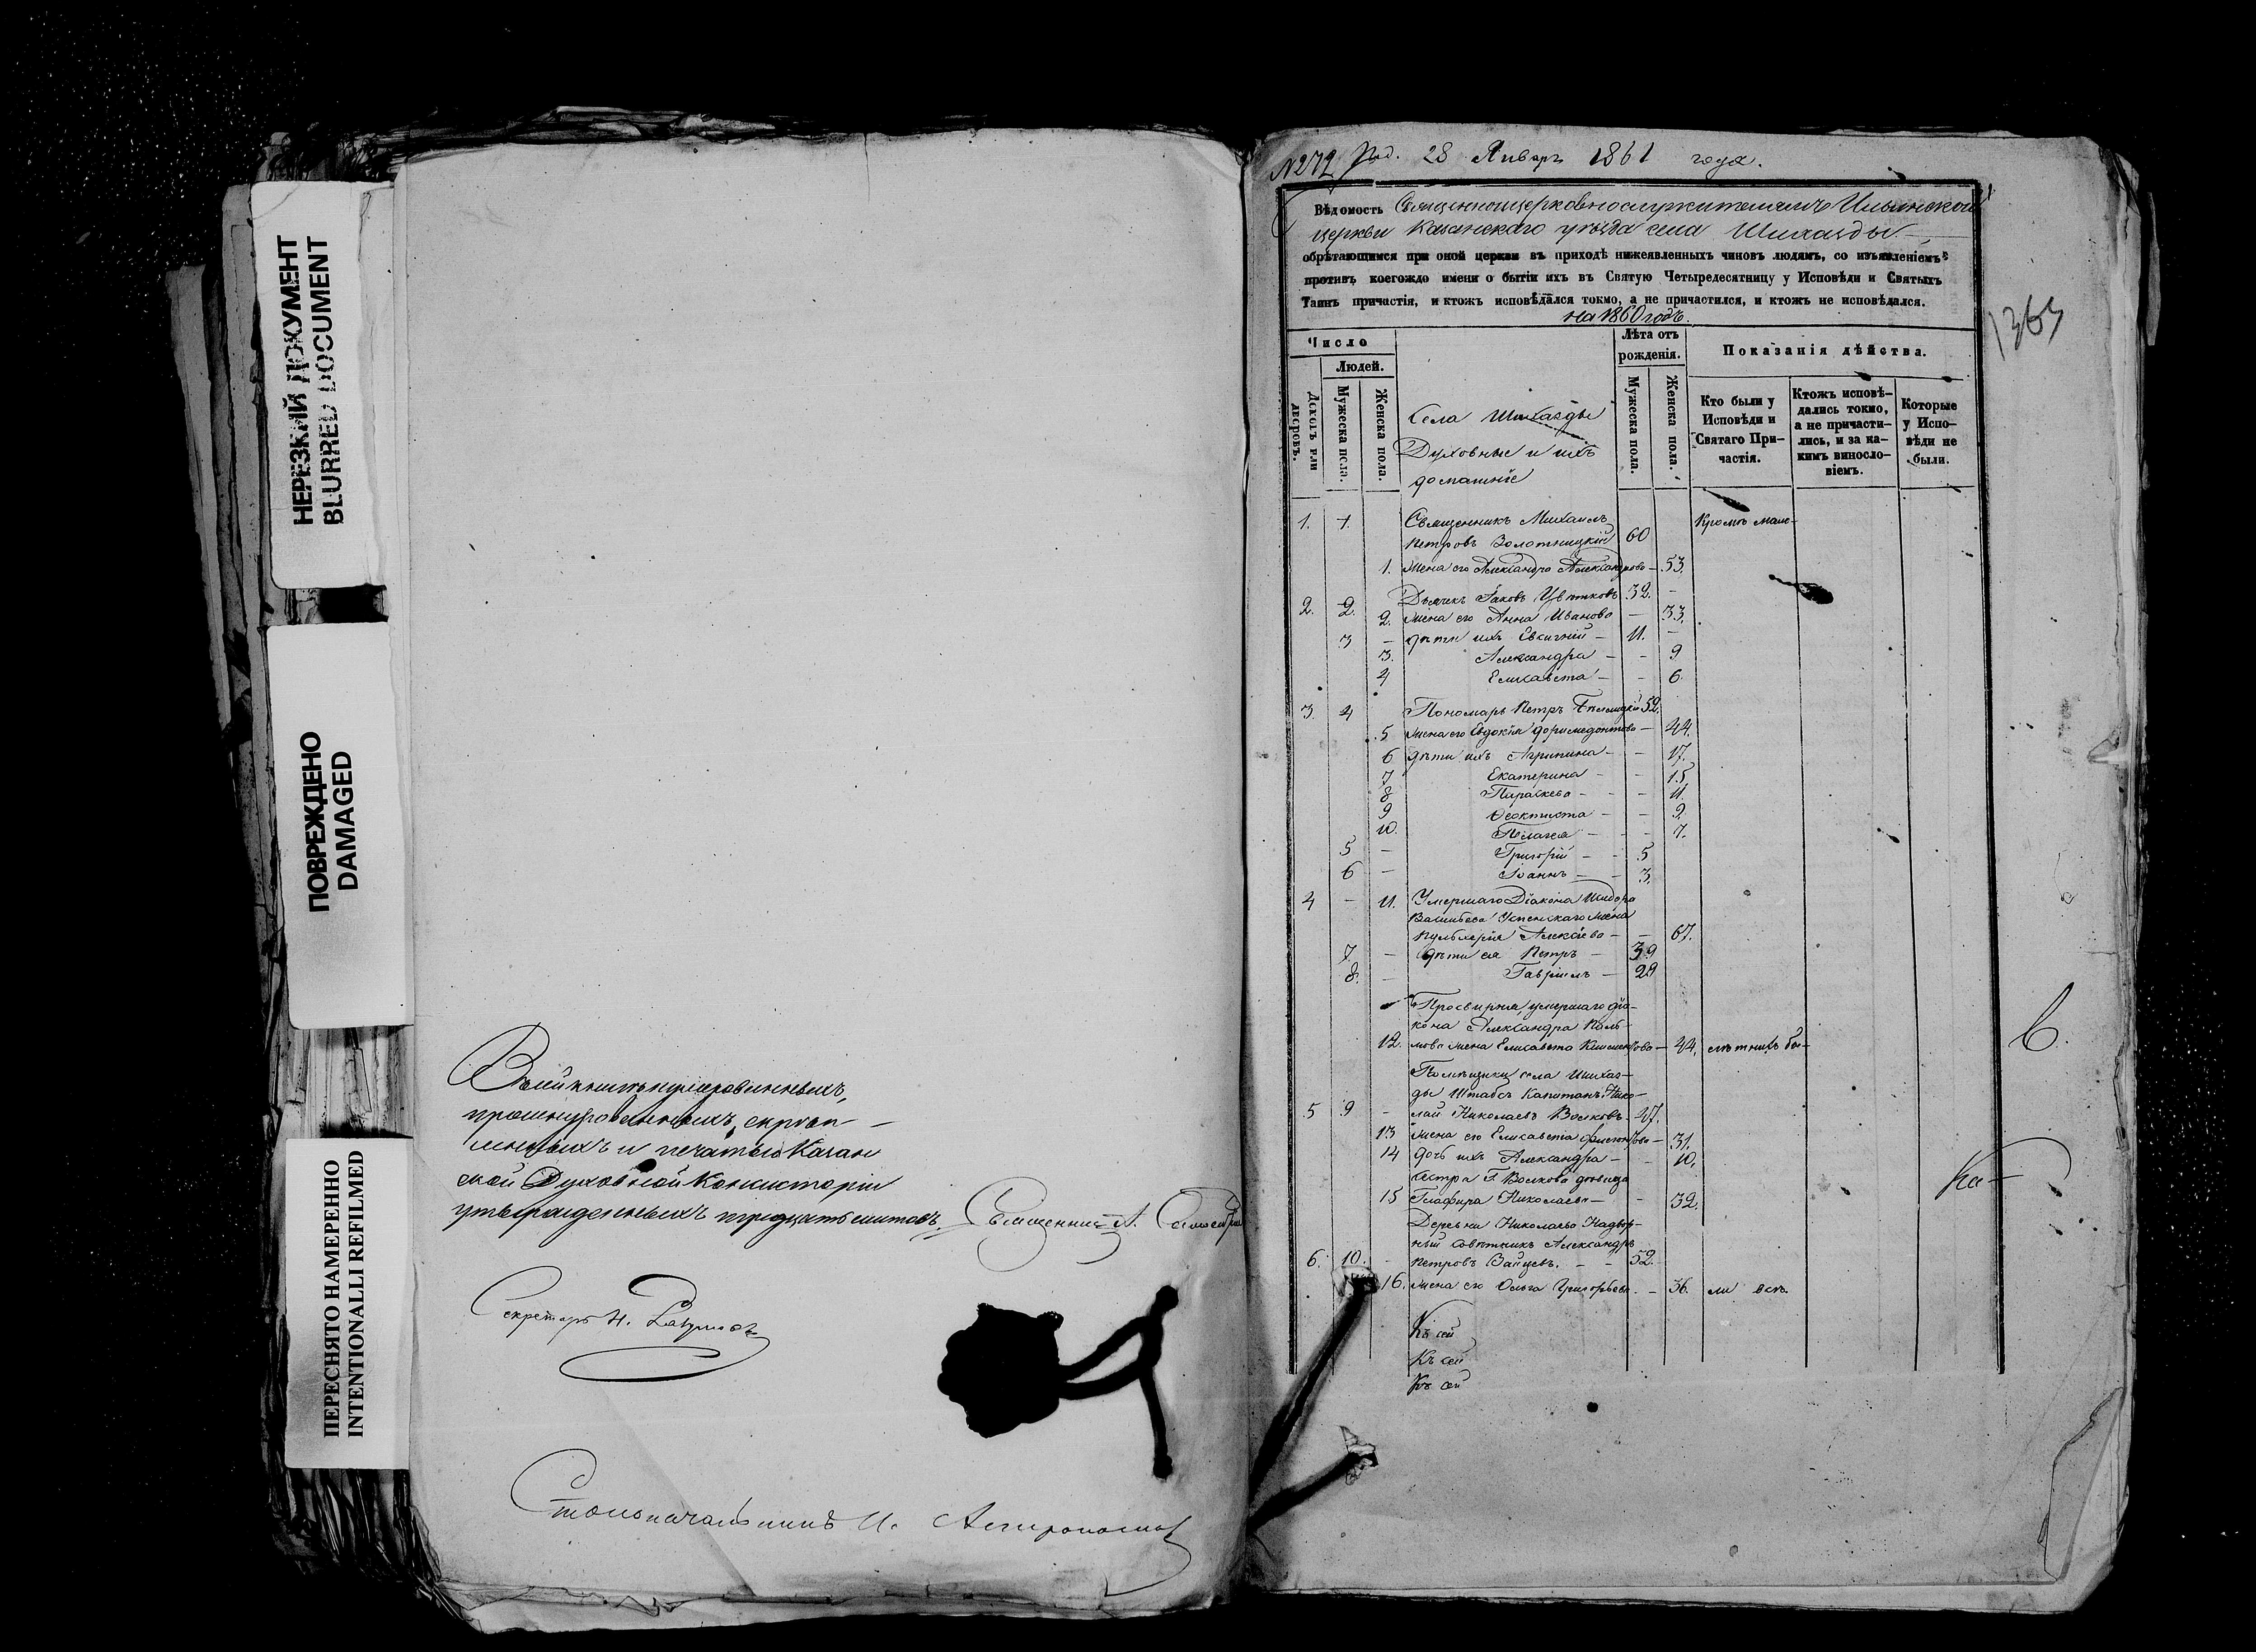 НЕРЕЗКИЙ ДОКУМЕНТ
BLURRED DOCUMENT
ПОВРЕЖДЕНО
DAMAGED
ПЕРЕСНЯТО НАМЕРЕННО
INTENTIONALLI REFILMED
Въ сей книгѣ нумерованныхъ,
прошнурованныхъ, скрѣп-
ленныхъ и печатью Казан
ской Духовной Консисторіи
утвержденныхъ тридцать листовъ. Священникъ А.
Секретарь Н.
Столоначальникъ И.
N272 28 Январь 1861 года.
Вѣдомость Священноцерковнослужителямъ Ильинской
церкви Казанскаго уѣзда села Шихазды
обрѣтающимся при оной церкви въ приходѣ нижеявленныхъ чиновъ людямъ, со изъявленіемъ
противъ коегождо имени о бытіи ихъ въ Святую Четыредесятницу у Исповѣди и Святыхъ
Таинъ причастія, и ктожъ исповѣдался токмо, а не причастился, и ктожъ не исповѣдался.
на 1860 годъ.
1363
Число
Людей.
Домовъ или дворовъ.
Мужеска пола.
Женска пола.
Села Шихазды
Духовные и ихъ
домашніе
Лѣта отъ рожденія.
Мужеска пола.
Женска пола.
Показанія дѣйства.
Кто были у Исповѣди и Святаго При-частія.
Ктожъ исповѣ-дались токмо, а не причасти-лись, и за ка-кимъ винословіемъ.
Которые у Испо-вѣди не были.
1. 1 Священникъ Михаилъ Кромѣ мало-
Петровъ Золотницкій 60
1. жена его Александра Александрова — 53.
Дьячекъ Іаковъ Цвѣтковъ 32. —
2. 2. 2. жена его Анна Иванова — 33.
3 — дѣти ихъ Евгеній — 11. —
3. Александра — — 9
4 Елисавета — — 6.
3 4 Пономарь Петръ 52.
5 жена его Евдокія Доримедонтова — 44.
6 дѣти ихъ Агрипина — — 17.
7 Екатерина — — 15
8 Параскева — — 11.
9 Ѳеоктиста — — 9.
10. Пелагея — — 7.
5 — Григорій — 5
6 — Іоаннъ — 3.
4 — 11. Умершаго Діакона Исидора
Васильева Успенскаго жена
Пульхерія Алексіева — — 67.
7. — дѣти ея Петръ — 39
8. — Гавріилъ — 29
Просвирня, умершаго діа-
кона Александра
12. жена Елисавета — 44. лѣтнихъ бы-
Помѣщики села Шихаз-
ды Штабсъ Капитанъ Нико-
5 9 — лай Николаевъ Волковъ 47.
13 жена его Елисавета — 31.
14 дочь ихъ Александра — — 10.
сестра Г. Волкова дѣвица
15 Глафира Николаева — — 32.
Деревни Николаево Надвор-
ный Совѣтникъ Александръ
6. 10. — Петровъ — — 52.
16. жена его Ольга Григорьева — 36. ли всѣ.
Къ сей
Къ сей
Къ сей
6.
Ка-